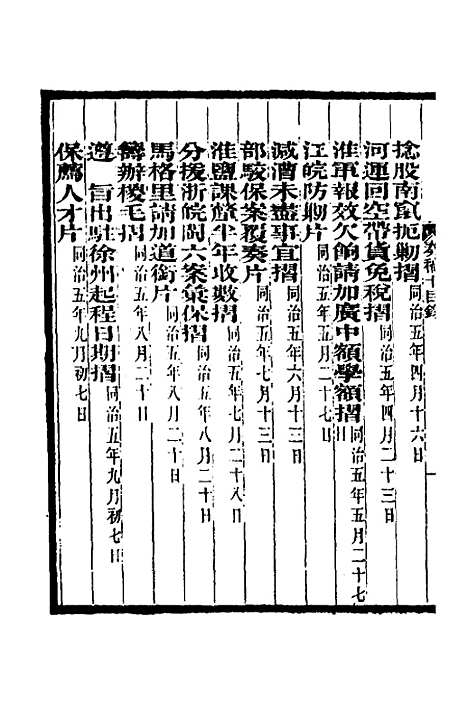 奏稿十目錄 一
捻股南竄扼勦摺 同治五年四月十六日
河運回空帶貨免稅摺 同治五年四月二十三日
淮軍報效欠餉請加廣中額學額摺 同治五年五月二十七日
江皖防勦片 同治五年五月二十七日
減漕未盡事宜摺 同治五年六月十三日
部駁保案覆奏片 同治五年七月十三日
淮鹽課釐半年收數摺 同治五年七月二十八日
分援浙皖閩六案彙保摺 同治五年八月二十日
馬格里請加道銜片 同治五年八月二十日
籌辦稷毛摺 同治五年八月二十日
遵 旨出駐徐州起程日期摺 同治五年九月初七日
保薦人才片 同治五年九月初七日